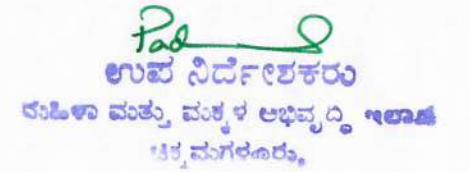 ಉಪ ನಿರ್ದೇಶಕರು
ಮಹಿಳಾ ಮತ್ತು ಮಕ್ಕಳ ಅಭಿವೃದ್ಧಿ ಇಲಾಖೆ
ಚಿಕ್ಕಮಗಳೂರು,